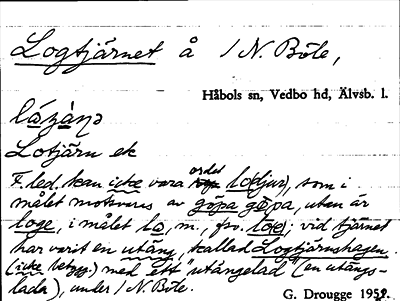 Logtjärnet å 1 N. Böle,
Håbols sn, Vedbo hd, Älvsb. l.
Lotjärn ek
F. led. kan icke vara ordet lo (djur), som i
målet motsvaras av göpa, utan är
loge, i målet lo, m., fsv. loe; vid tjärnet
har varit en utäng, kallad Logtjärnshagen
(icke bebygg.) med ett "utängelad" (en utängs-
lada), under 1 N. Böle.
G. Drougge 1952.